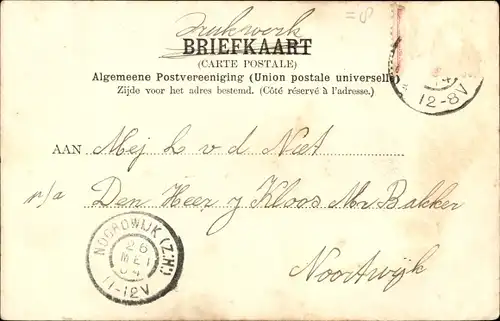 Drukwerk
=8
BRIEFKAART
(CARTE POSTALE)
Algemeene Postvereeniging (Union postale universelle)
Zijde voor het adres bestemd. (Côté réservé à l'adresse.)
12-8V
AAN Mej L v d Niet
p/a Den Heer J Kloos Mr Bakker
Noortwijk
NOORDWIJK (Z.H.)
26
MEI
04
11-12V